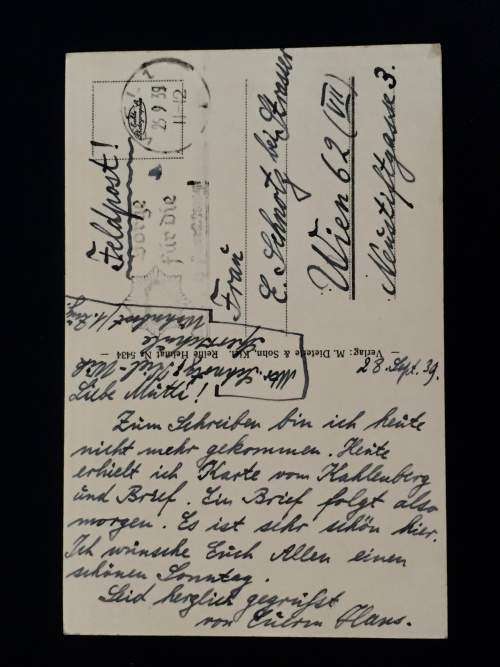 Feldpost!
25.9.39
11-12
Sorge
für die
Frau
E. Schnotz bei Strasser
Wien 62 (VII)
Neustiftgasse 3.
Verlag: M. Dieterle & Sohn, Kiel. Reihe Heimat No 5434
Mtr. Schnotz, Kiel-Wik
Sportschule
28. Sept. 39.
Liebe Mutti!
Zum Schreiben bin ich heute
nicht mehr gekommen. Heute
erhielt ich Karte vom Kahlenberg
und Brief. Ein Brief folgt also
morgen. Es ist sehr schön hier.
Ich wünsche Euch Allen einen
schönen Sonntag.
Seid herzlich gegrüßt
von Eurem Hans.